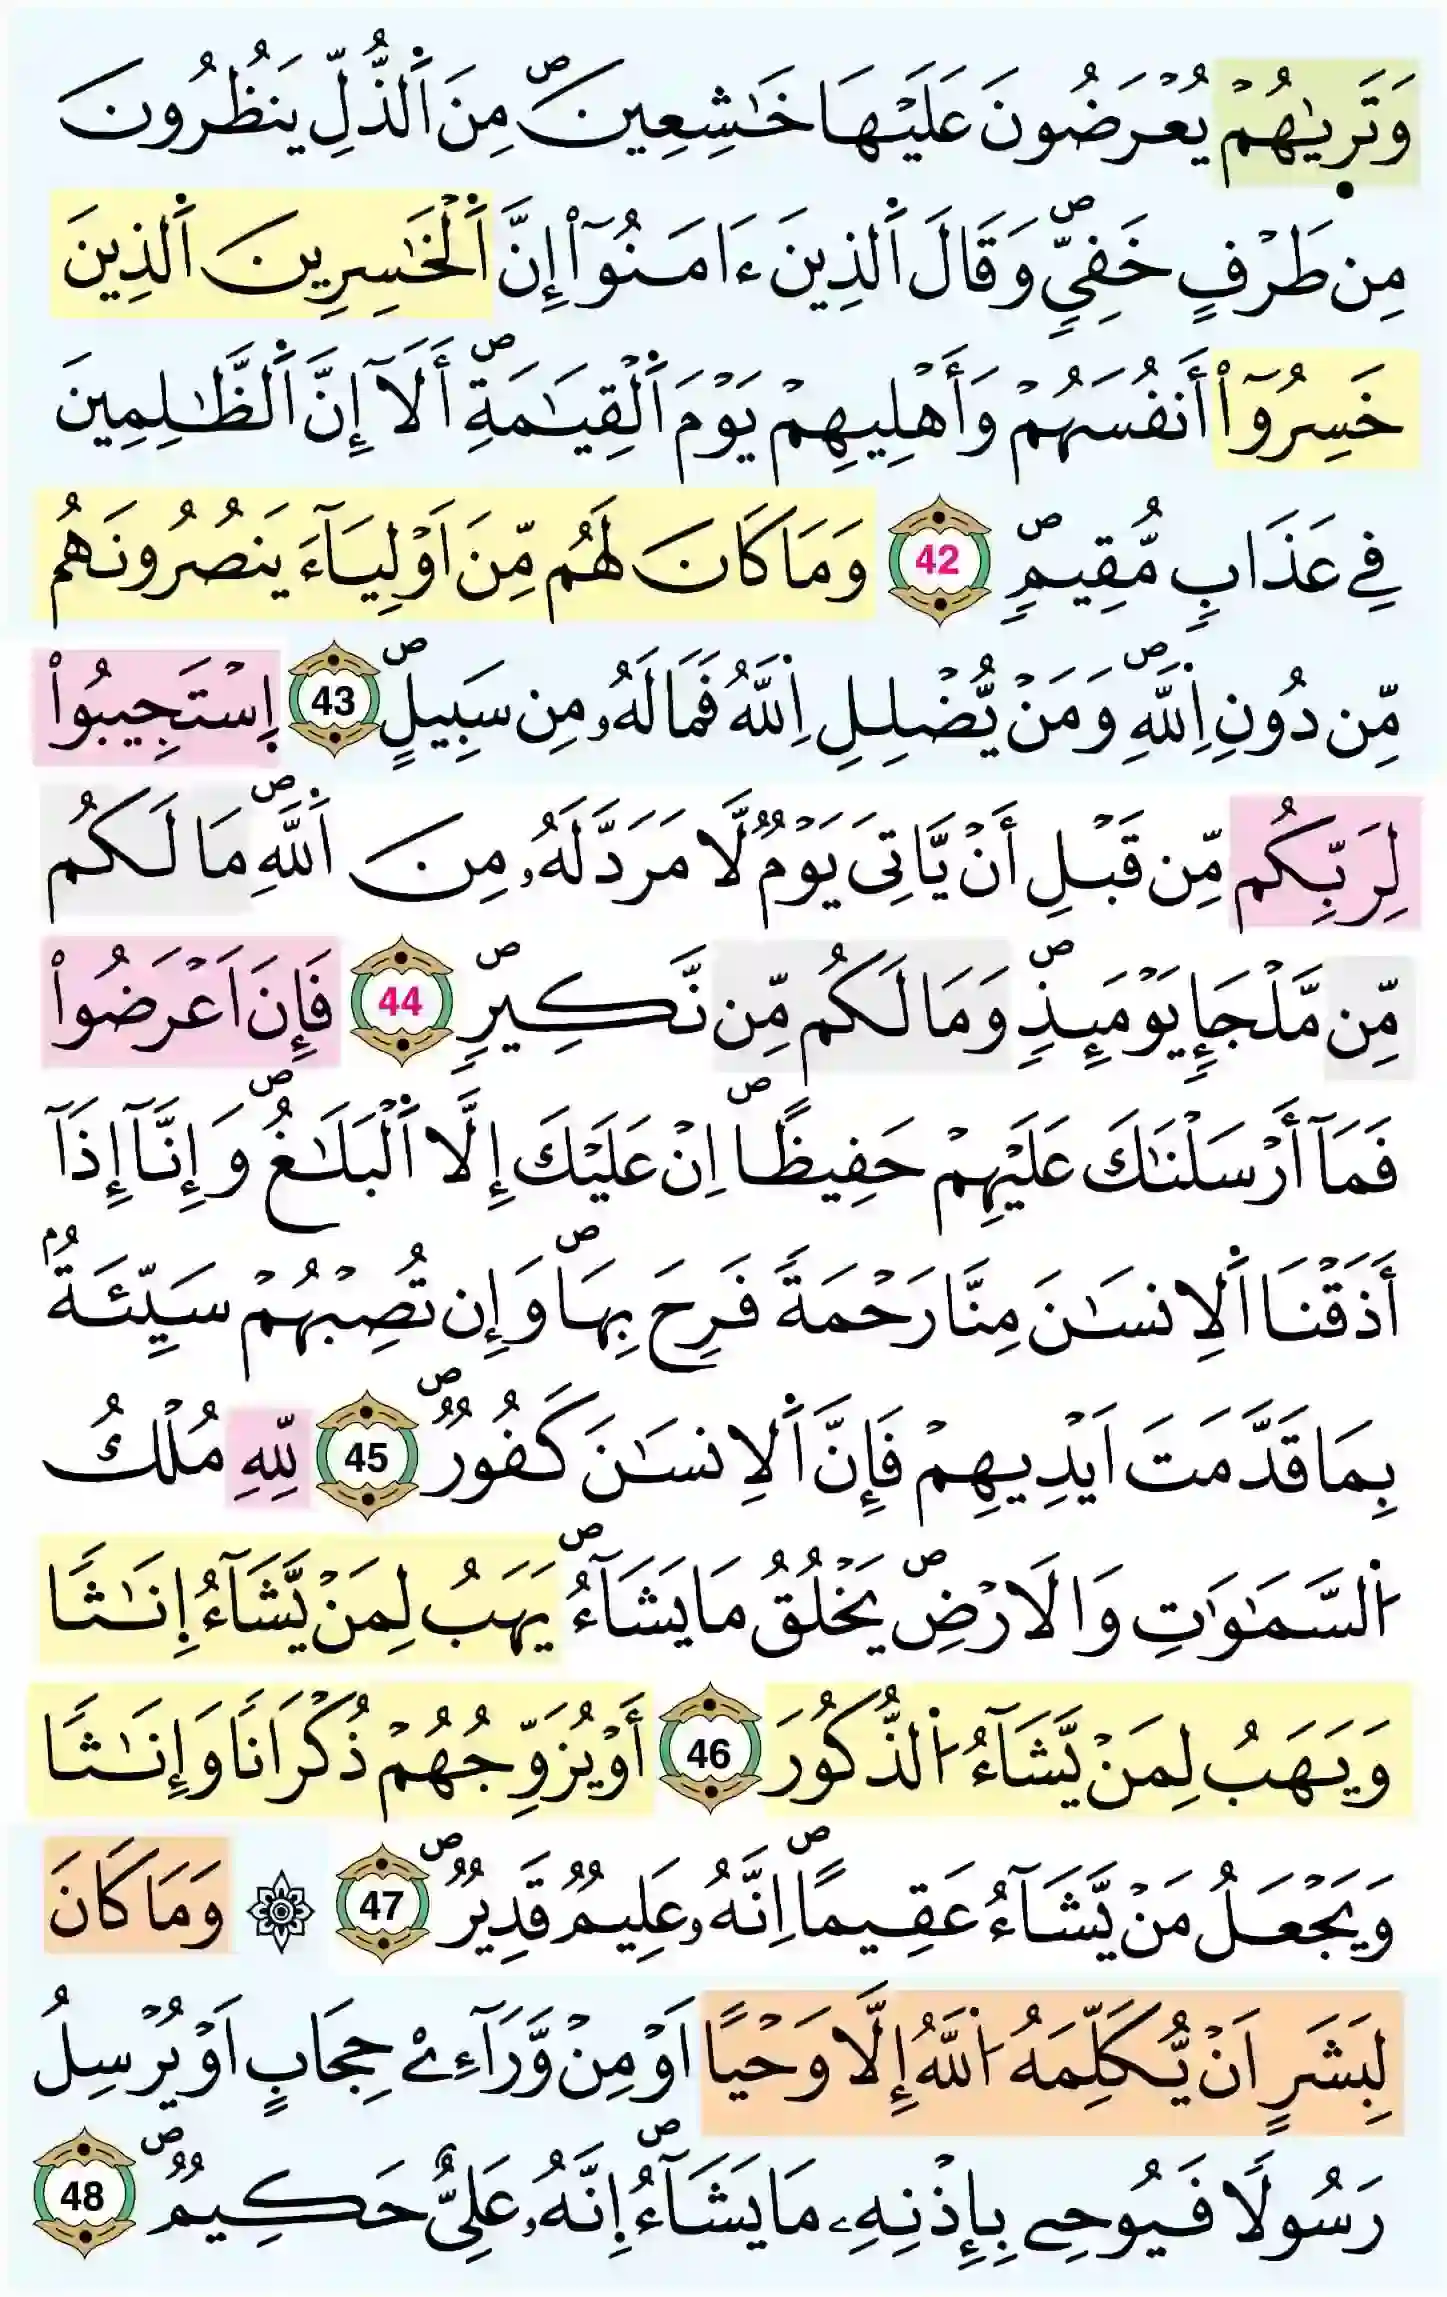 وَتَر۪يٰهُمْ يُعْرَضُونَ عَلَيْهَا خَٰشِعِينَۖ مِنَ اَ۬لذُّلِّ يَنظُرُونَ
مِن طَرْفٍ خَفِيّٖۖ وَقَالَ اَ۬لذِينَ ءَامَنُوٓاْ إِنَّ اَ۬لْخَٰسِرِينَ اَ۬لذِينَ
خَسِرُوٓاْ أَنفُسَهُمْ وَأَهْلِيهِمْ يَوْمَ اَ۬لْقِيَٰمَةِۖ أَلَآ إِنَّ اَ۬لظَّٰلِمِينَ
فِے عَذَابٖ مُّقِيمٖۖ 42 وَمَا كَانَ لَهُم مِّنَ اَوْلِيَآءَ يَنصُرُونَهُم
مِّن دُونِ اِ۬للَّهِۖ وَمَنْ يُّضْلِلِ اِ۬للَّهُ فَمَا لَهُۥ مِن سَبِيلٍۖ 43 اِ۪سْتَجِيبُواْ
لِرَبِّكُم مِّن قَبْلِ أَنْ يَّاتِىَ يَوْمٞ لَّا مَرَدَّ لَهُۥ مِنَ اَ۬للَّهِۖ مَا لَكُم
مِّن مَّلْجَإٖ يَوْمَئِذٖۖ وَمَا لَكُم مِّن نَّكِيرٖۖ 44 فَإِنَ اَعْرَضُواْ
فَمَآ أَرْسَلْنَٰكَ عَلَيْهِمْ حَفِيظاًۖ اِنْ عَلَيْكَ إِلَّا اَ۬لْبَلَٰغُۖ وَإِنَّآ إِذَآ
أَذَقْنَا اَ۬لِانسَٰنَ مِنَّا رَحْمَةٗ فَرِحَ بِهَاۖ وَإِن تُصِبْهُمْ سَيِّئَةُۢ
بِمَا قَدَّمَتَ اَيْدِيهِمْ فَإِنَّ اَ۬لِانسَٰنَ كَفُورٞۖ 45 لِلهِ مُلْكُ
اُ۬لسَّمَٰوَٰتِ وَالَارْضِۖ يَخْلُقُ مَا يَشَآءُۖ يَهَبُ لِمَنْ يَّشَآءُ إِنَٰثاٗ
وَيَهَبُ لِمَنْ يَّشَآءُ اُ۬لذُّكُورَ 46 أَوْ يُزَوِّجُهُمْ ذُكْرَاناٗ وَإِنَٰثاٗ
وَيَجْعَلُ مَنْ يَّشَآءُ عَقِيماًۖ اِنَّهُۥ عَلِيمٞ قَدِيرٞۖ 47 ۞ وَمَا كَانَ
لِبَشَرٍ اَنْ يُّكَلِّمَهُ اُ۬للَّهُ إِلَّا وَحْياً اَوْ مِنْ وَّرَآءِےْ حِجَابٍ اَوْ يُرْسِلُ
رَسُولاٗ فَيُوحِے بِإِذْنِهِۦ مَا يَشَآءُۖ اِنَّهُۥ عَلِيٌّ حَكِيمٞۖ 48